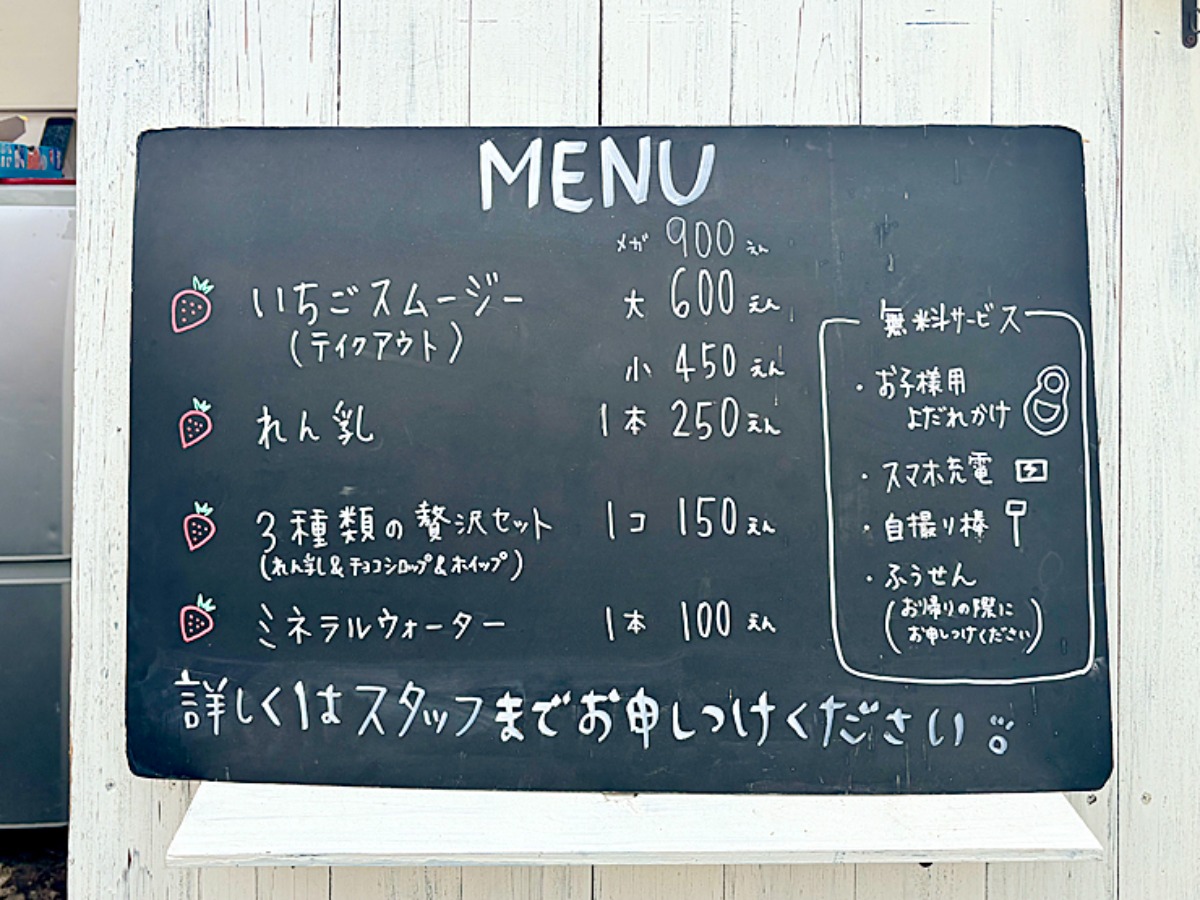 MENU
メガ 900 えん
いちごスムージー 大 600 えん
(テイクアウト)
小 450 えん
れん乳 1本 250 えん
3種類の贅沢セット 1コ 150 えん
(れん乳&チョコシロップ&ホイップ)
ミネラルウォーター 1本 100 えん
無料サービス
・お子様用
よだれかけ
・スマホ充電
・自撮り棒
・ふうせん
(お帰りの際に
お申しつけください)
詳しくはスタッフまでお申しつけください